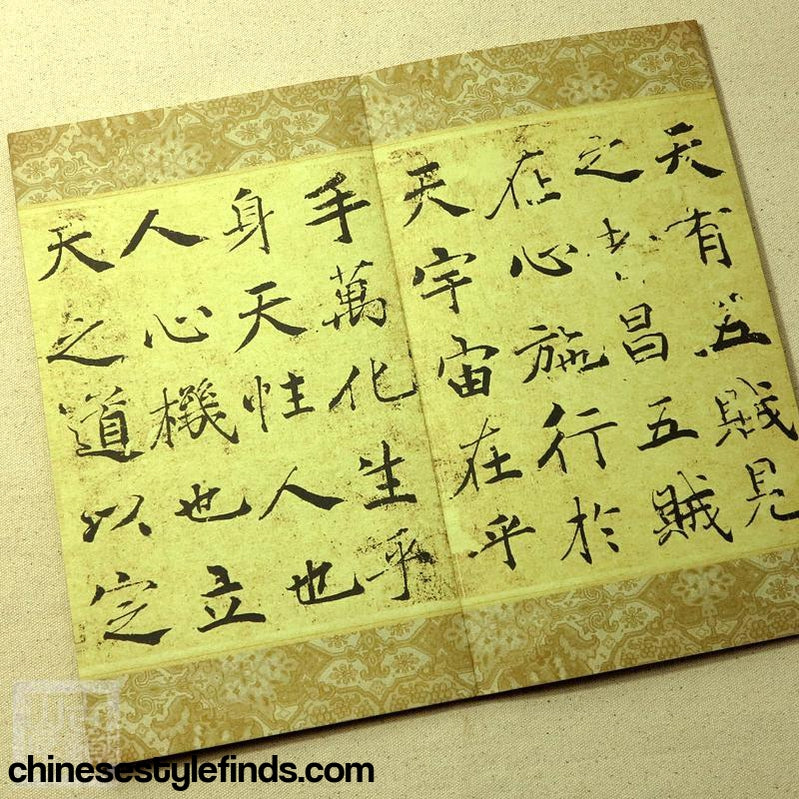 天有五賊見
之者昌五賊
在心施行於
天宇宙在乎
手萬化生乎
身天性人也
人心機也立
天之道以定
chinesestylefinds.com